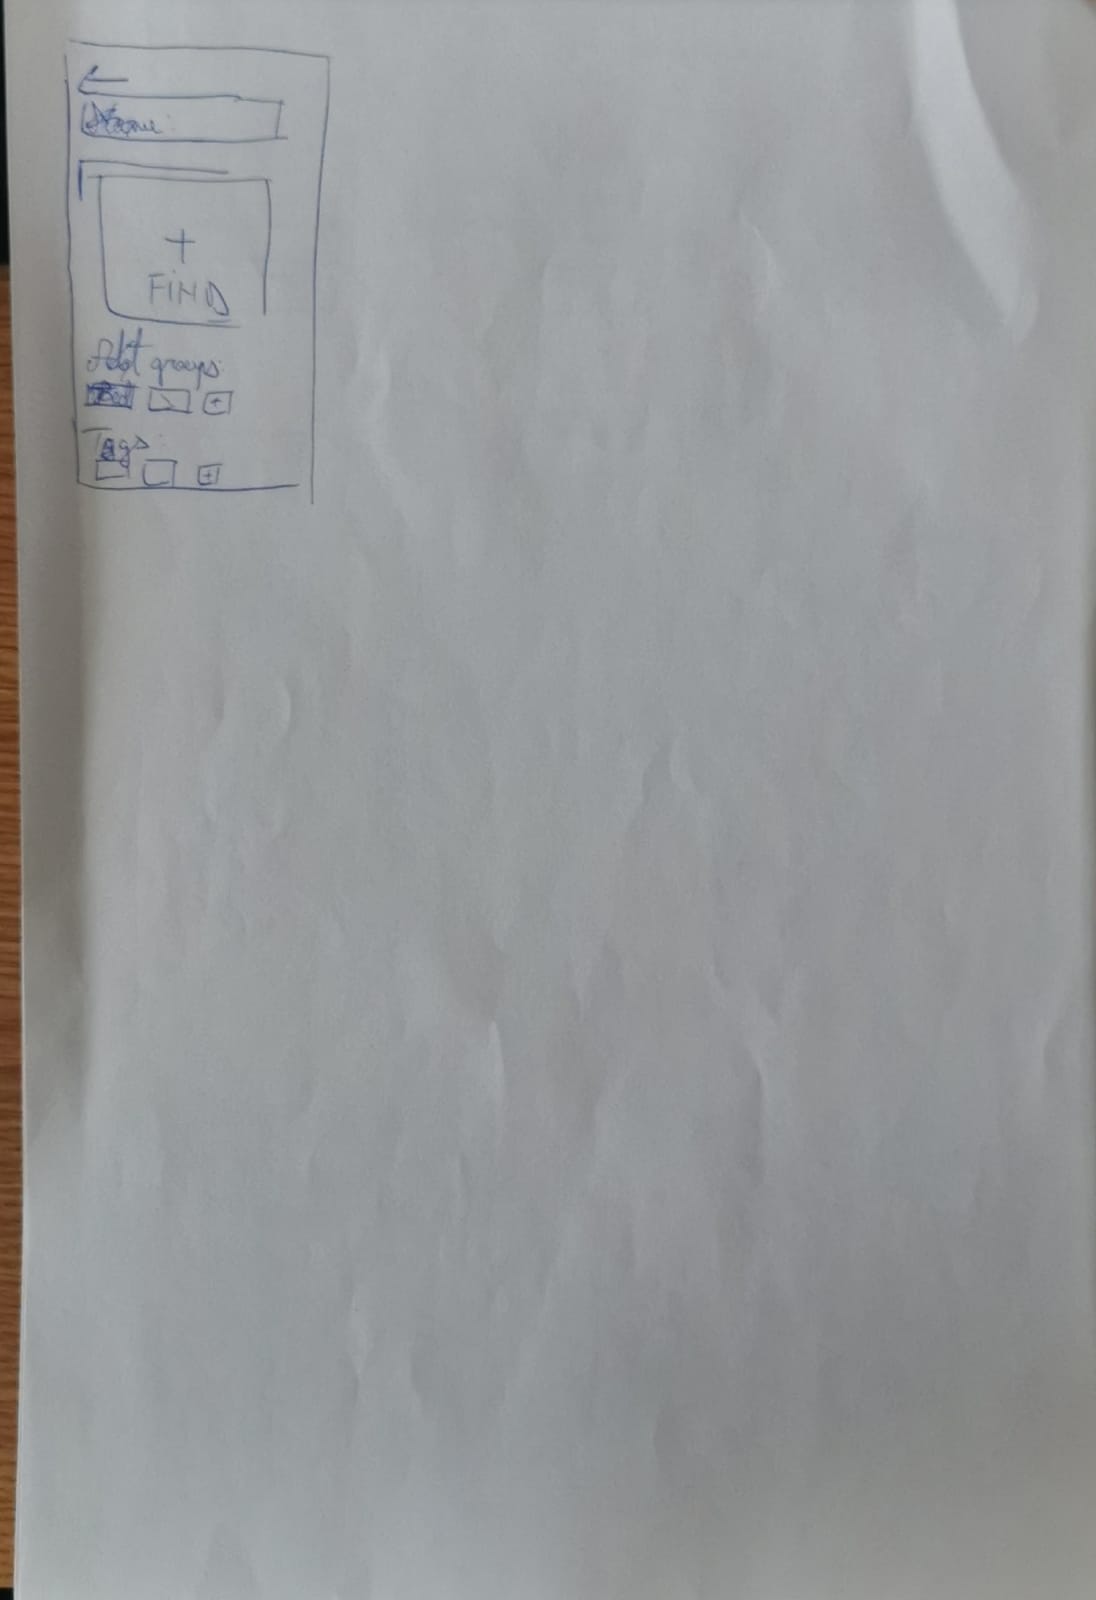 Name:
+
FIND
Add groups:
+
Tags:
+